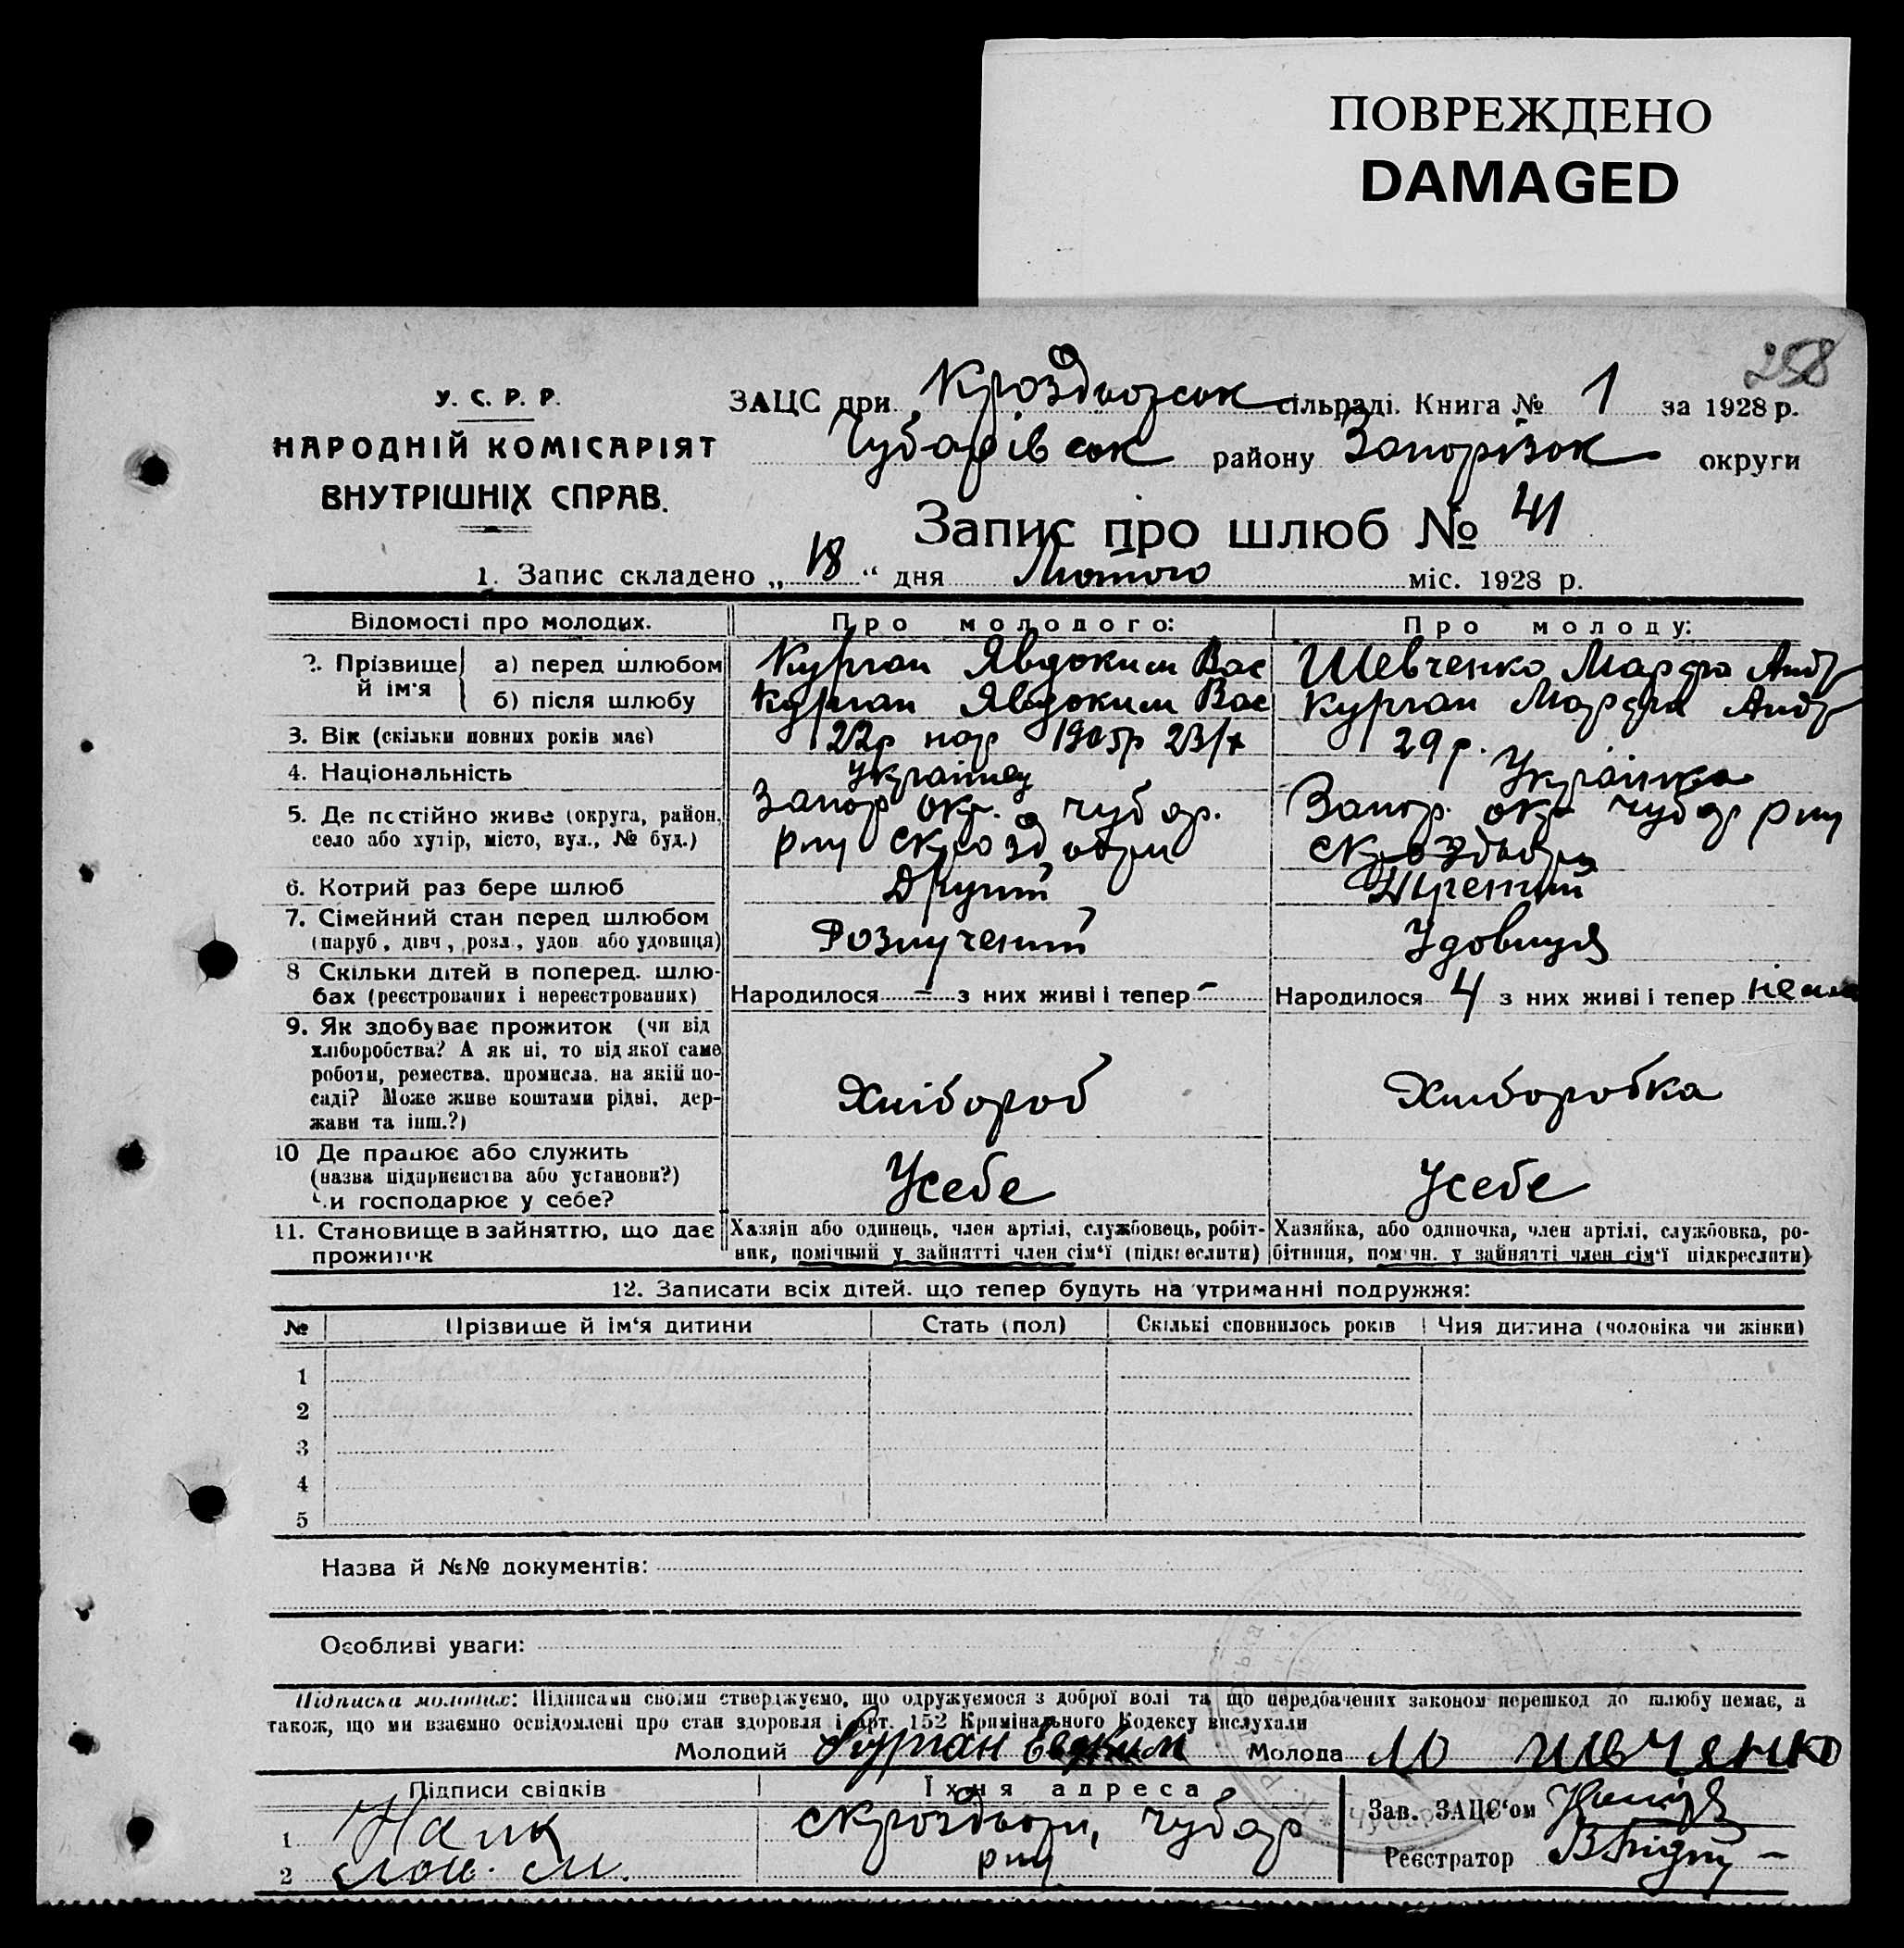 ПОВРЕЖДЕНО
DAMAGED
258
У. С. Р. Р.
НАРОДНІЙ КОМІСАРІЯТ
ВНУТРІШНІХ СПРАВ.
ЗАЦС при Кроздворськ сільраді. Книга № 1 за 1928 р.
Чубарівськ району Запорізьк округи
Запис про шлюб № 41
1. Запис складено „ 18 “ дня Лютого міс. 1928 р.
Відомості про молодих. Про молодого: Про молоду:
2. Прізвище й ім'я а) перед шлюбом Курган Явдоким Вас Шевченко Марфа Андр
б) після шлюбу Курган Явдоким Вас Курган Марфа Андр
3. Вік (скільки повних років має) 22р нар 1905р 23/х 29 р.
4. Національність Українец Українка
5. Де постійно живе (округа, район, Запор окр. Чубар. Запор. окр Чубар рну
село або хутір, місто, вул., № буд.) рну с Кроздвори с Кроздвори
6. Котрий раз бере шлюб Другий
7. Сімейний стан перед шлюбом
(паруб, дівч, розл., удов або удовиця) Розлучений Удовиця
8 Скільки дітей в поперед. шлю-
бах (реєстрованих і нереєстрованих) Народилося - з них живі і тепер - Народилося 4 з них живі і тепер нема
9. Як здобуває прожиток (чи від
хліборобства? А як ні, то від якої саме
роботи, ремества, промисла, на якій по-
саді? Може живе коштами рідні, дер-
жави та інш.?) Хлібороб Хліборобка
10 Де працює або служить
(назва підприємства або установи?)
Чи господарює у себе? Усебе Усебе
11. Становище в зайняттю, що дає
прожиток
Хазяїн або одинець, член артілі, службовець, робіт-
ник, помічний у зайнятті член сім'ї (підкреслити)
Хазяйка, або одиночка, член артілі, службовка, ро-
бітниця, помічн. у зайнятті член сім'ї підкреслити)
12. Записати всіх дітей. що тепер будуть на утриманні подружжя:
№ Прізвище й ім'я дитини Стать (пол) Скількі сповнилось років Чия дитина (чоловіка чи жінки)
1
2
3
4
5
Назва й №№ документів:
Особливі уваги:
Підписка молодих: Підписами своїми стверджуємо, що одружуємося з доброї волі та що передбачених законом перешкод до шлюбу немає, а
також, що ми взаємно освідомлені про стан здоровля і арт. 152 Кримінального Кодексу вислухали
Молодий Курган Євдоким Молода
Підписи свідків Їхня адреса
1 с Кроздвори, Чубар
2 рну
Зав. ЗАЦС'ом
Реєстратор